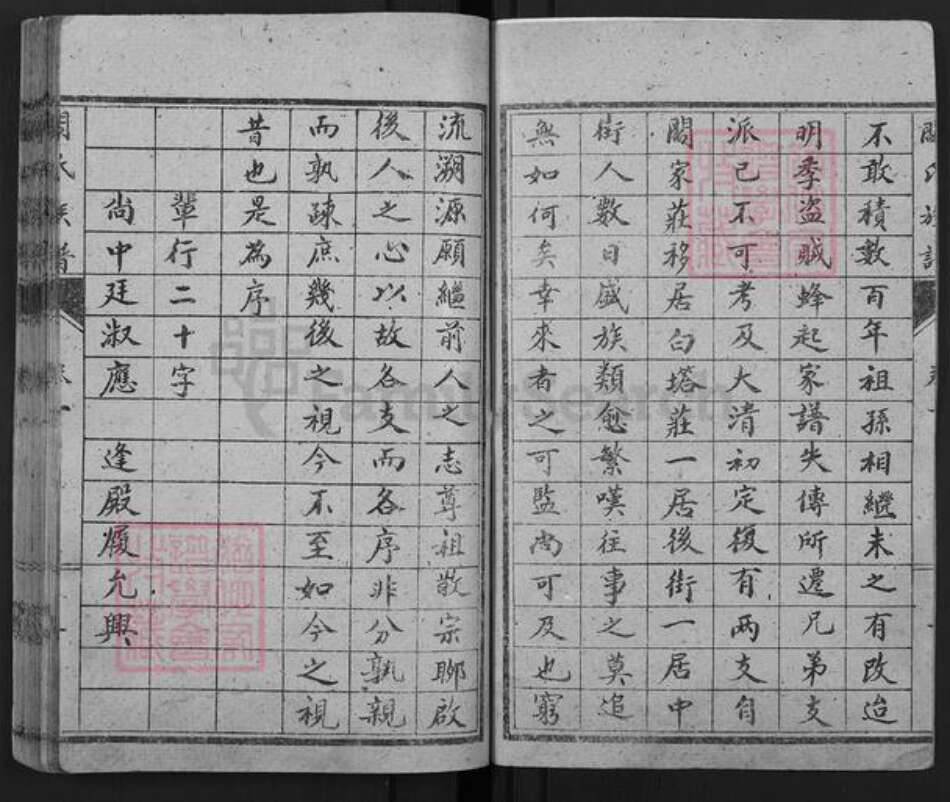 閻氏族譜
不敢積數百年祖孫相繼未之有改迨
明季盜賊蜂起家譜失傳所遷兄弟支
派已不可考及大清初定復有兩支自
閻家莊移居白塔莊一居後街一居中
街人數日盛族類愈繁嘆往事之莫追
無如何矣幸來者之可監尚可及也窮
流溯源願繼前人之志尊祖敬宗聊啟
後人之心以故各支而各序非分孰親
而孰疎庶幾後之視今不至如今之視
昔也是為序
輩行二十字
尚中廷淑應 逢殿履允興
FamilySearch